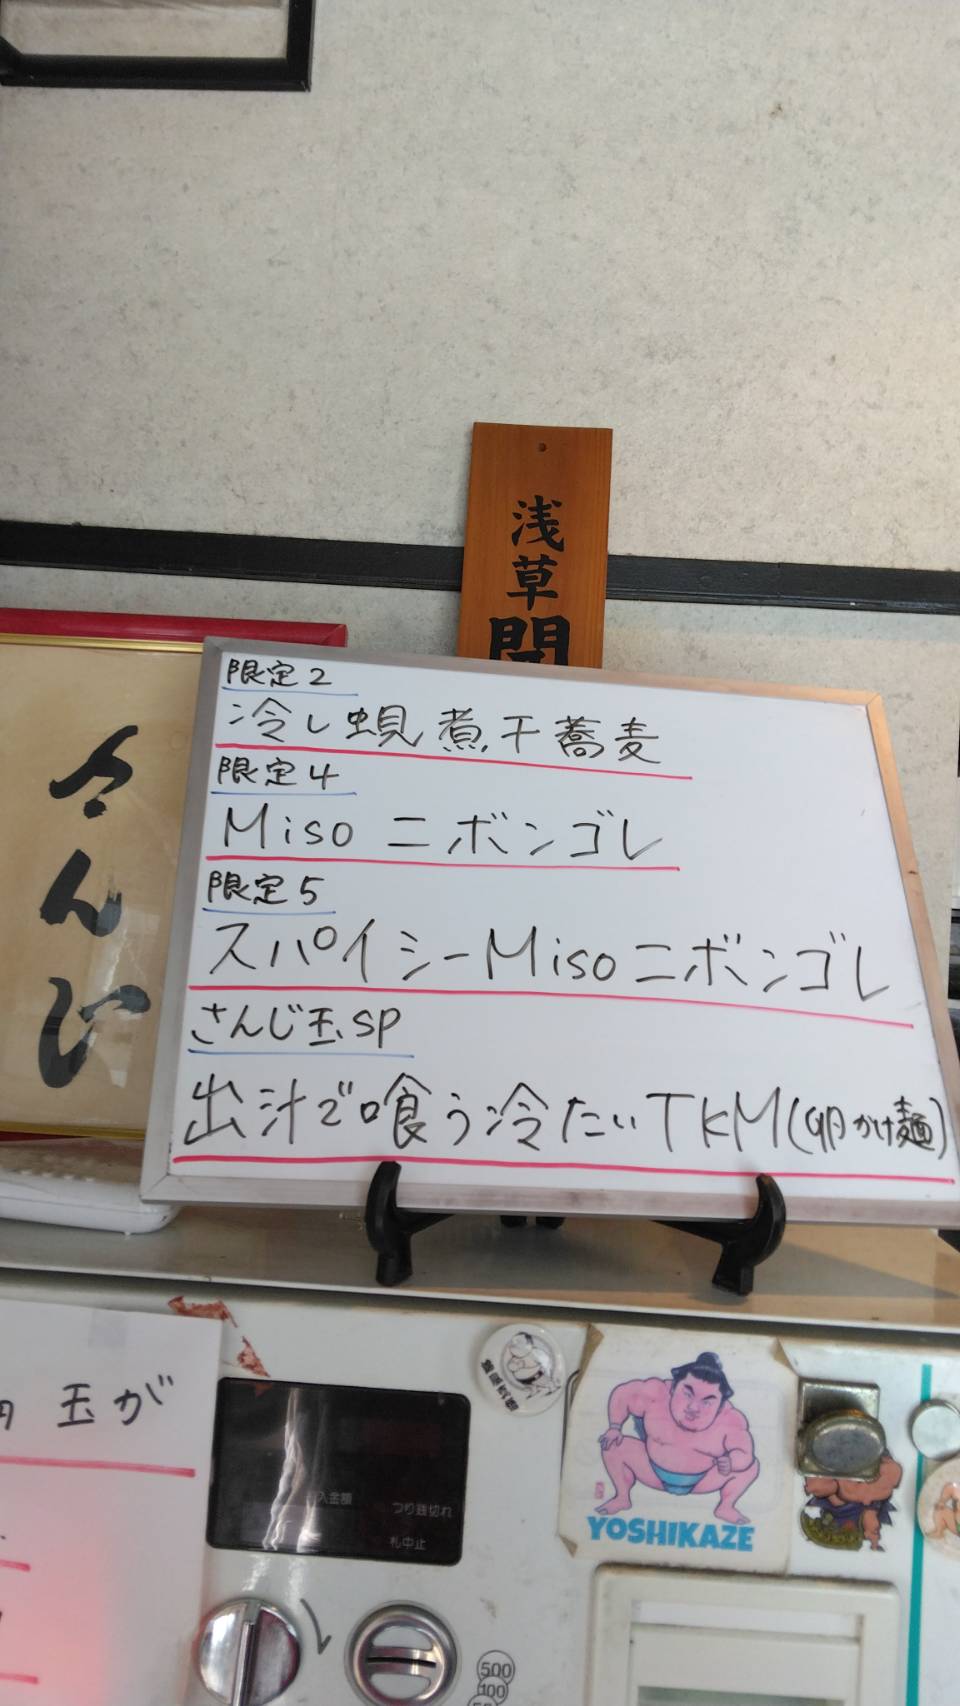 浅草開
さんじ
限定2
冷し蜆煮干蕎麦
限定4
Miso ニボンゴレ
限定5
スパイシーMisoニボンゴレ
さんじ玉SP
出汁で喰う冷たいTKM(卵かけ麺)
玉が
入金額
つり銭切れ
札中止
YOSHIKAZE
500
100